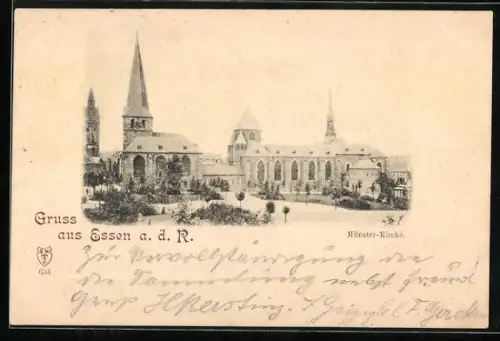 Gruss
aus Essen a. d. R.
Münster-Kirche.
634
Zur Vervollständigung die
die Sammlung nebst Freund
Grup Kersting.